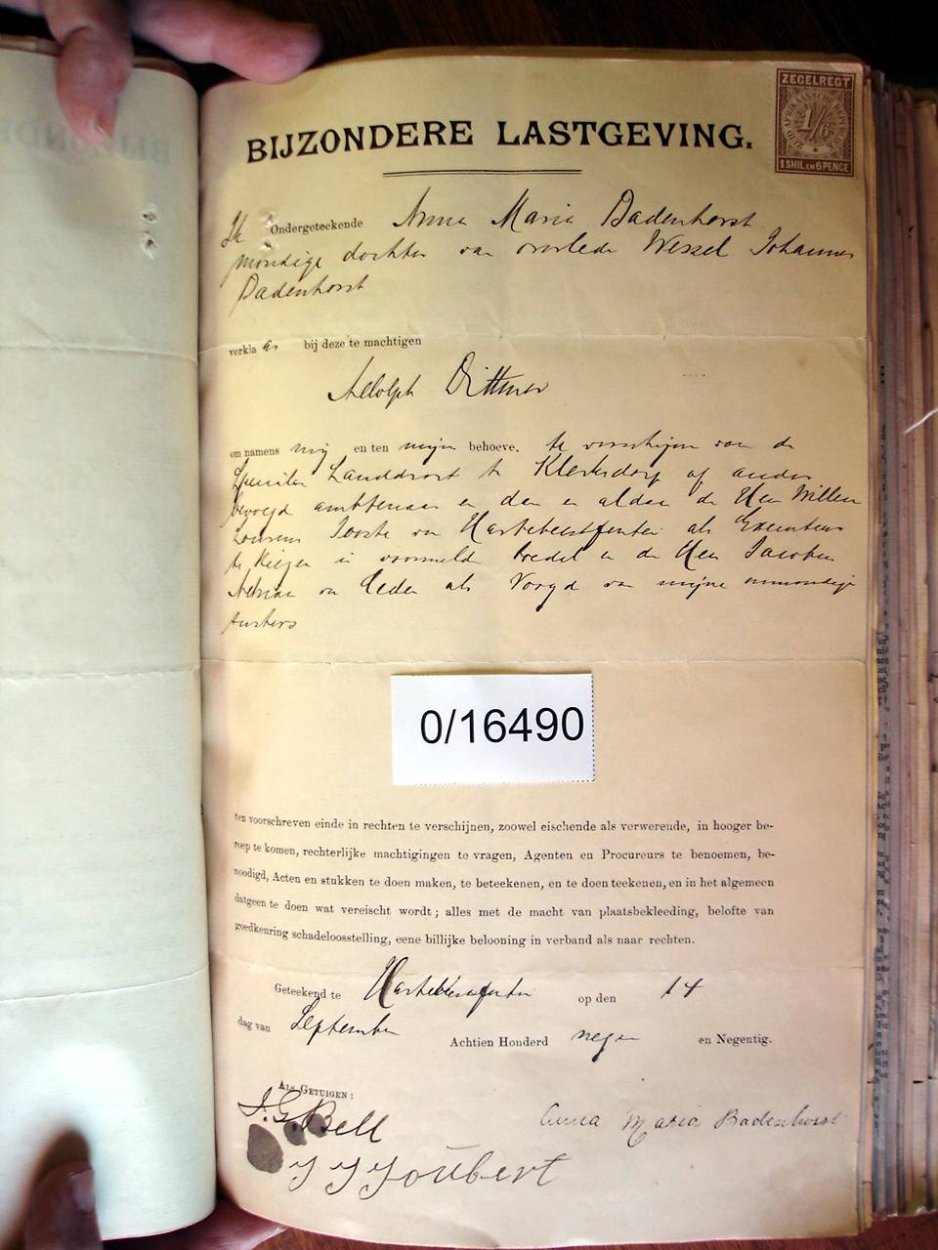 ZEGELREGT
1/6
1 SHIL. EN 6 PENCE
BIJZONDERE LASTGEVING.
Ik Ondergeteekende Anna Maria Badenhorst
mondige dochter van overlede Wessel Johannes
Badenhorst
verkla bij deze te machtigen
Adolph Dittmer
om namens mij en ten mijn behoeve, te verschijnen voor de
Landdrost te Klerksdorp of ander
bevoegd ambtenaar en dan en aldaar de Heer Willem
Joosté van Hartebeestfontein als Executeur
te kiezen in voormeld boedel en de Heer Jacobus
Adriaan als Voogd van mijne onmondige
zusters
0/16490
ten voorschreven einde in rechten te verschijnen, zoowel eischende als verwerende, in hooger be-
roep te komen, rechterlijke machtigingen te vragen, Agenten en Procureurs te benoemen, be-
noodigd, Acten en stukken te doen maken, te beteekenen, en te doen teekenen, en in het algemeen
datgeen te doen wat vereischt wordt; alles met de macht van plaatsbekleeding, belofte van
goedkeuring schadeloosstelling, eene billijke belooning in verband als naar rechten.
Geteekend te Hartebeestfontein op den 14
dag van September Achtien Honderd negen en Negentig.
Als Getuigen:
J. G. Bell
Anna Maria Badenhorst
J J Joubert